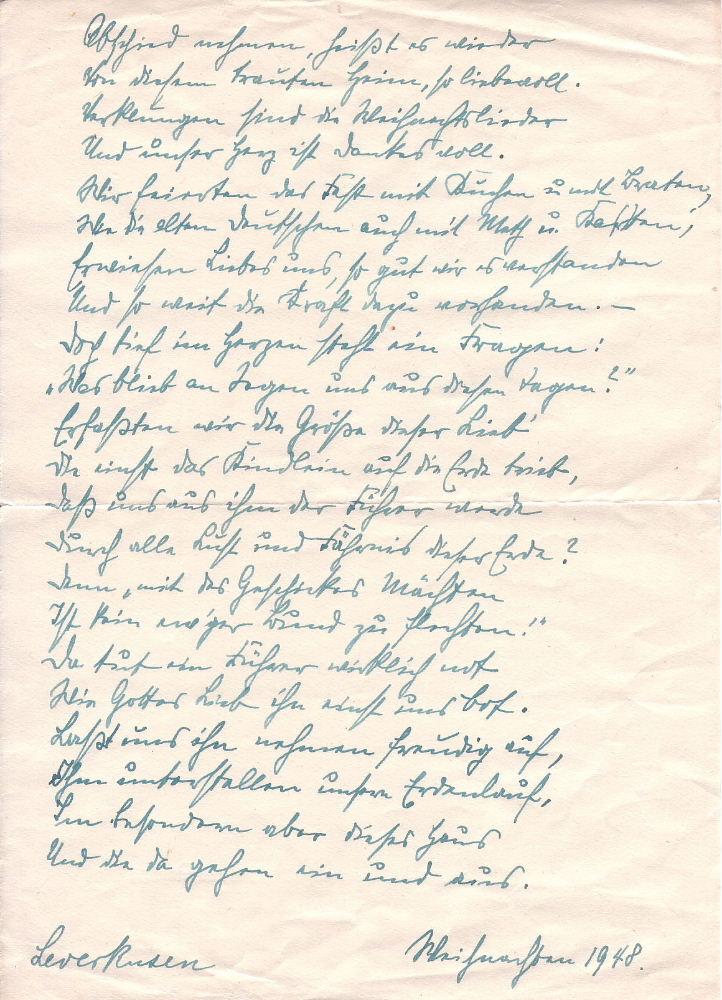 Abschied nehmen, heißt es wieder
Von diesem trauten Heim, so liebevoll.
Verklungen sind die Weihnachtslieder
Und unser Herz ist dankesvoll.
Wir feierten das Fest mit Kuchen u. mit Braten,
Wie die alten Deutschen auch mit Meth u.
Erwiesen Liebes uns, so gut wir es verstanden
Und so weit die Kraft dazu vorhanden. —
Doch tief im Herzen steht ein Fragen:
„Was blieb an Segen uns aus diesen Tagen?"
Erfaßten wir die Größe dieser Lieb'
Die einst das Kindlein auf die Erde trieb,
Daß uns aus ihm der Führer werde
Durch alle Lust und Fährnis dieser Erde?
Denn „mit des Geschickes Mächten
Ist kein ew'ger Bund zu flechten!"
Da tut ein Führer wirklich not
Wie Gottes Lieb ihn einst uns bot.
Laßt uns ihn nehmen freudig auf,
Ihm unterstellen unsern Erdenlauf,
Im besondern aber dieses Haus
Und die da gehen ein und aus.
Leverkusen Weihnachten 1948.